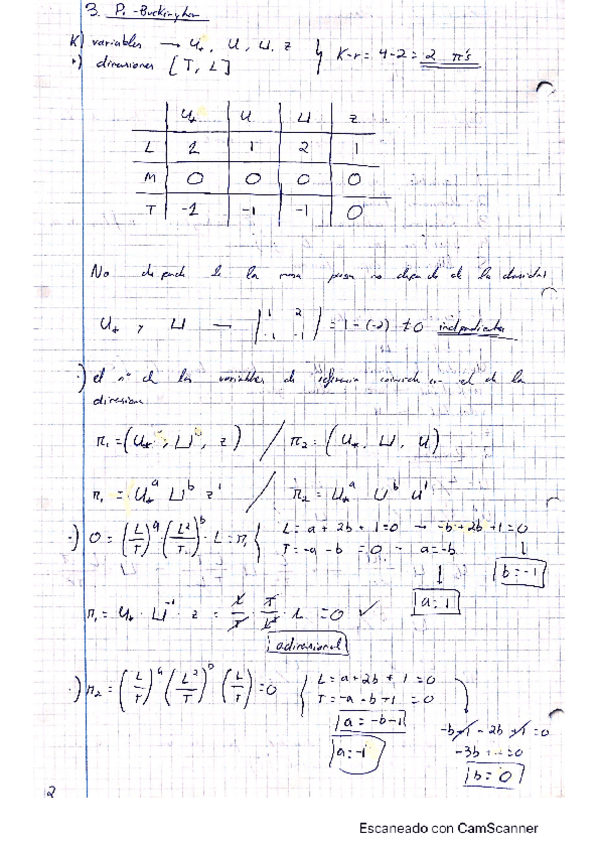 3. Pi-Buckingham
K) variables → u*, u, ⊔, z } K-r = 4-2 = 2 π's
r) dimensiones [T, L]
u* u ⊔ z
L 1 1 2 1
M 0 0 0 0
T -1 -1 -1 0
No depende de la masa pues no depende de la densidad
u* y ⊔ → | 1 2 -1 -1 | = 1-(-2) ≠ 0 independientes
·) el nº de las variables de referencia coincide con el de la
dimension
π₁ = (u*, ⊔, z) / π₂ = (u*, ⊔, u)
π₁ = u*^a ⊔^b z^1 / π₂ = u*^a ⊔^b u^1
·) 0 = (L/T)^a · (L²/T)^b · L = π₁ { L = a + 2b + 1 = 0 → -b + 2b + 1 = 0
T = -a - b = 0 → a = -b
b = -1
a = 1
π₁ = u* · ⊔^-1 · z = L/T · T/L² · L = 0 ✓
adimensional
·) π₂ = (L/T)^a (L²/T)^b (L/T) = 0 { L = a + 2b + 1 = 0
T = -a - b + 1 = 0
a = -b - 1
-b - 1 - 2b + 1 = 0
a = -1
b = 0
2
Escaneado con CamScanner